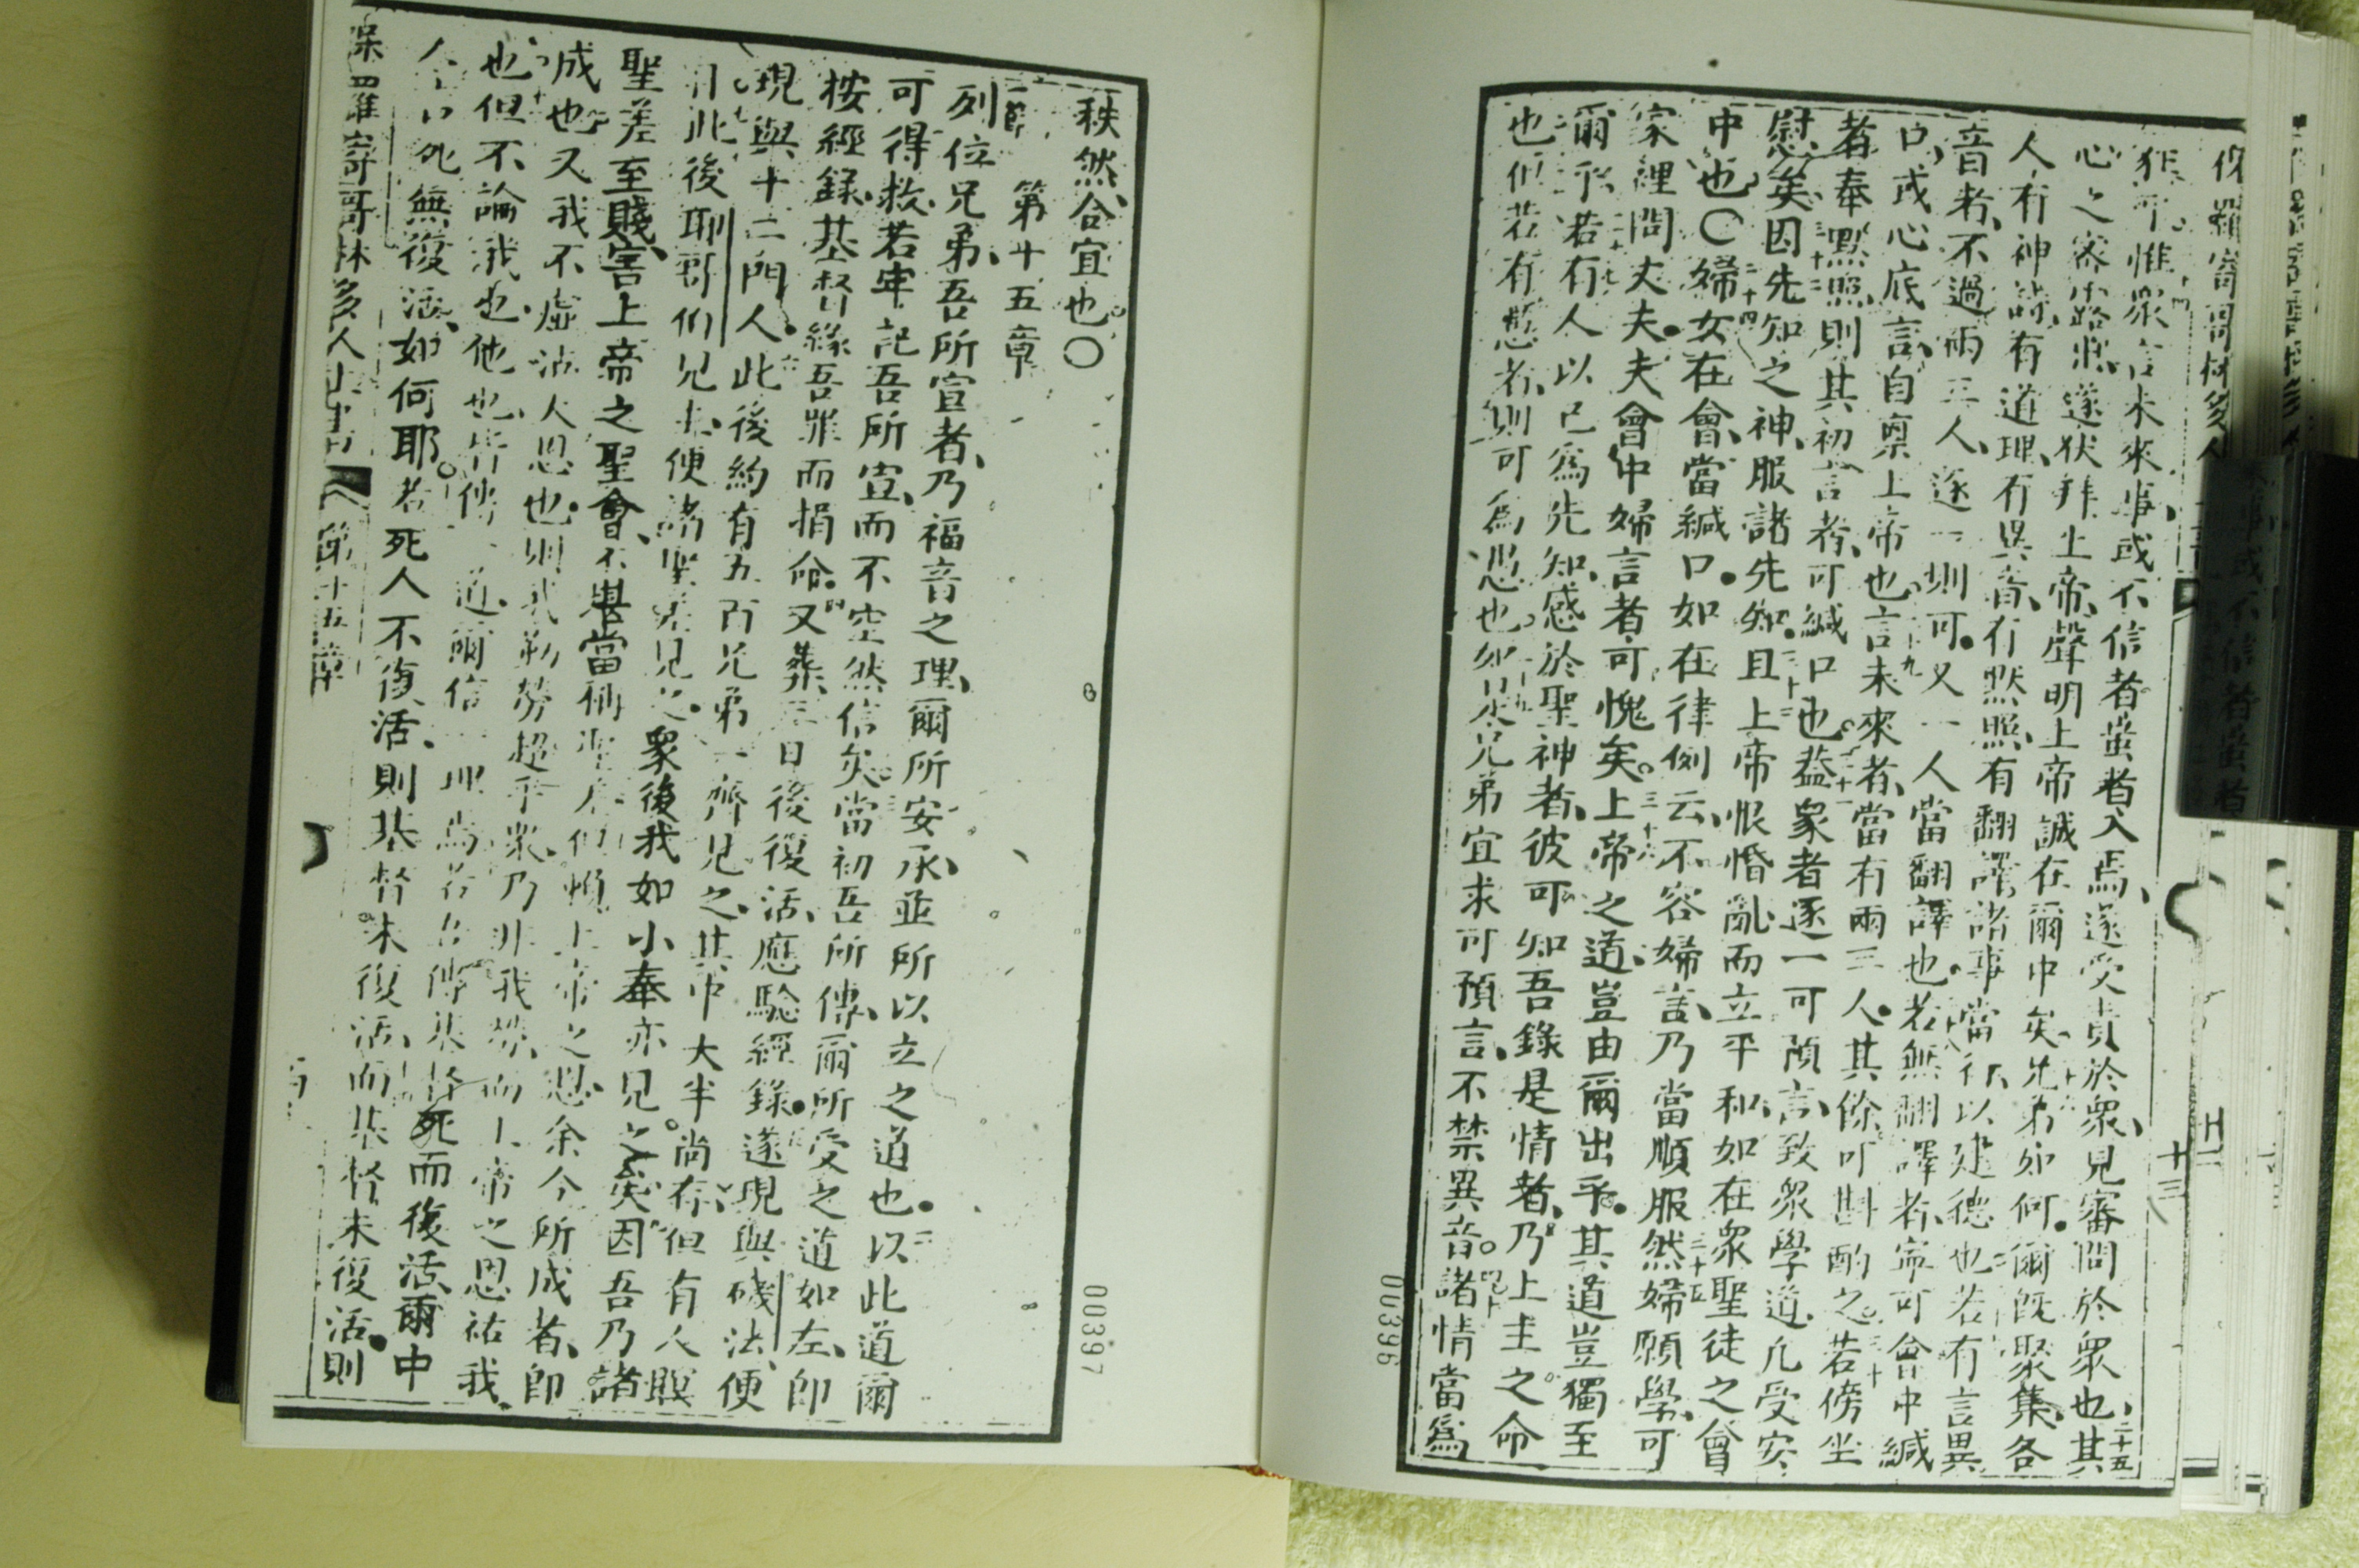 狂可惟衆言未來事、或不信者蚩者入焉、遂受責於衆、見審問於衆也、其
心之密路遂狀拜上帝、聲明上帝誠在爾中矣、兄弟如何、爾旣聚集、各
人有神詩、有道理、有異音、有默照、有翻譯、諸事當行以建德也、若有言異
音者、不過兩三人、逐一則可、又一人當翻譯也、若無翻譯者、寧可會中緘
口、或心底言、自禀上帝也、言未來者、當有兩三人、其餘可斟酌之、若傍坐
者奉默照、則其初言者、可緘口也、葢衆者逐一可預言、致衆學道、凡受安
慰矣、因先知之神、服諸先知、且上帝恨惛亂而立平和、如在衆聖徒之會
中也〇婦女在會、當緘口、如在律例云、不容婦言、乃當順服、然婦願學、可
家裡問丈夫、夫會中婦言者、可愧矣、上帝之道、豈由爾出乎、其道豈獨至
爾乎、若有人以已為先知、感於聖神者、彼可知吾錄是情者、乃上主之命
也、但若有愚者、則可為愚也、如是兄弟宜求可預言、不禁異音、諸情當為
十三
00396
秩然、合宜也〇
第十五章
列位兄弟、吾所宣者、乃福音之理、爾所安承、並所以立之道也、以此道爾
可得救、若牢記吾所宣、而不空然信矣、當初吾所傳、爾所受之道如左、即
按經錄、基督緣吾罪而捐命、又葬三日後復活、應騐經錄、遂現與磯法、便
現與十二門人、此後約有五百兄弟一齊見之、其中大半尚存、但有人瞑
此後耶哥伯見之、便諸聖差見之、衆後我如小奉亦見之矣、因吾乃諸
聖差至賤、害上帝之聖會、不當稱聖差、賴上帝之恩、余今所成者、即
成也、又我不虛沾大恩也、則我勤勞超乎衆、乃非我然、而上帝之恩祐我
也、但不論我也、他也、皆傳道、爾信傳基督死而後活、爾中
死無復活、如何耶、若死人不復活、則基督未復活、而基督未復活、則
保羅寄哥林多人上書
第十五章
00397